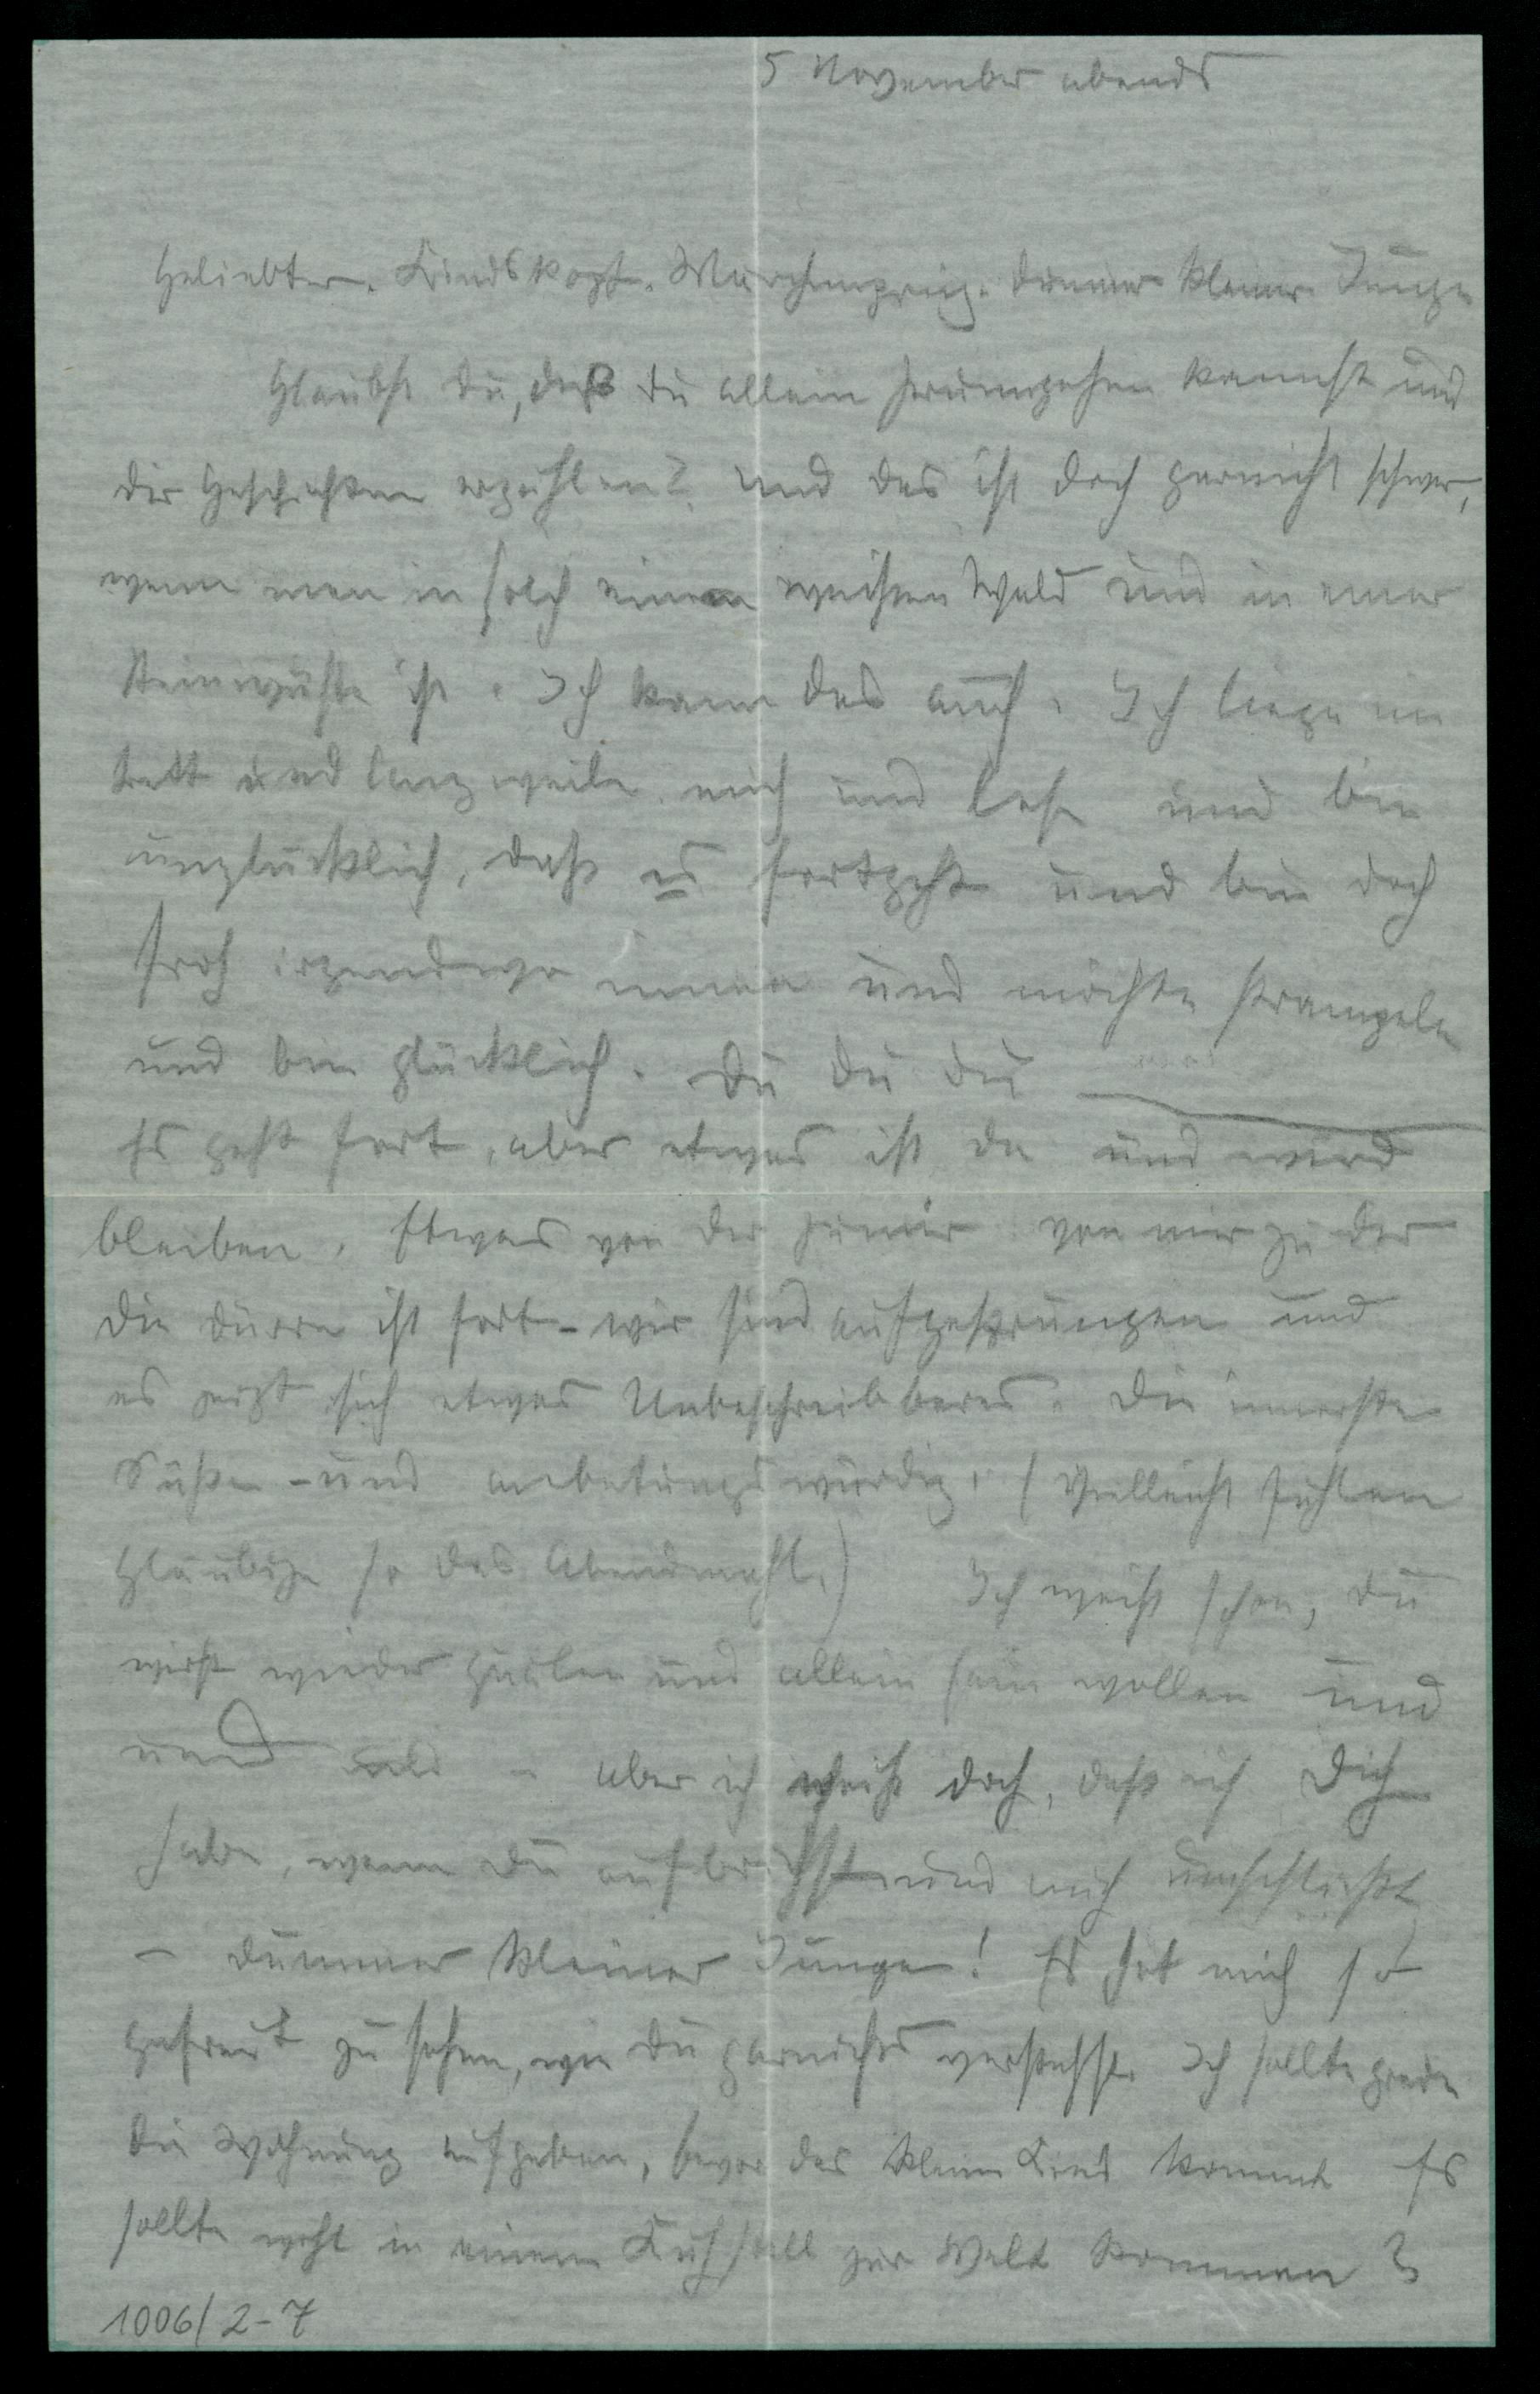 5 November abends
Geliebter. Kindskopf. Märchenprinz. Dummer kleiner Junge
Glaubst du, daß du allein herumgehen kannst und
dir Geschichten erzählen? und das ist doch garnicht schwer,
wenn man in solch einem weißen Wald und in einer
Steinwüste ist. Ich kann das auch. Ich liege im
Bett und langweile mich und lese und bin
unglücklich, daß es fortgeht und bin doch
froh irgendwo innen und möchte strampeln
und bin glücklich. Du du du
Es geht fort, aber etwas ist da und wird
bleiben. Etwas von dir zu mir von mir zu dir
die Dürre ist fort - wir sind aufgesprungen und
es zeigt sich etwas Unbeschreibbares. Die innerste
Süße - und anbetungswürdig. (Vielleicht fühlen
Gläubige so das Abendmahl.) Ich weiß schon, du
wirst wieder und allein sein wollen und
und - aber ich weiß doch, daß ich Dich
habe, wenn du aufbrichst und mich umschließt
- dummer kleiner Junge! Es hat mich so
gefreut zu sehen, wie du garnichts verstehst. Ich sollte grade
die Wohnung aufgeben, bevor das kleine Kind kommt Es
sollte wohl in einem Kuhstall zur Welt kommen?
1006/2-7